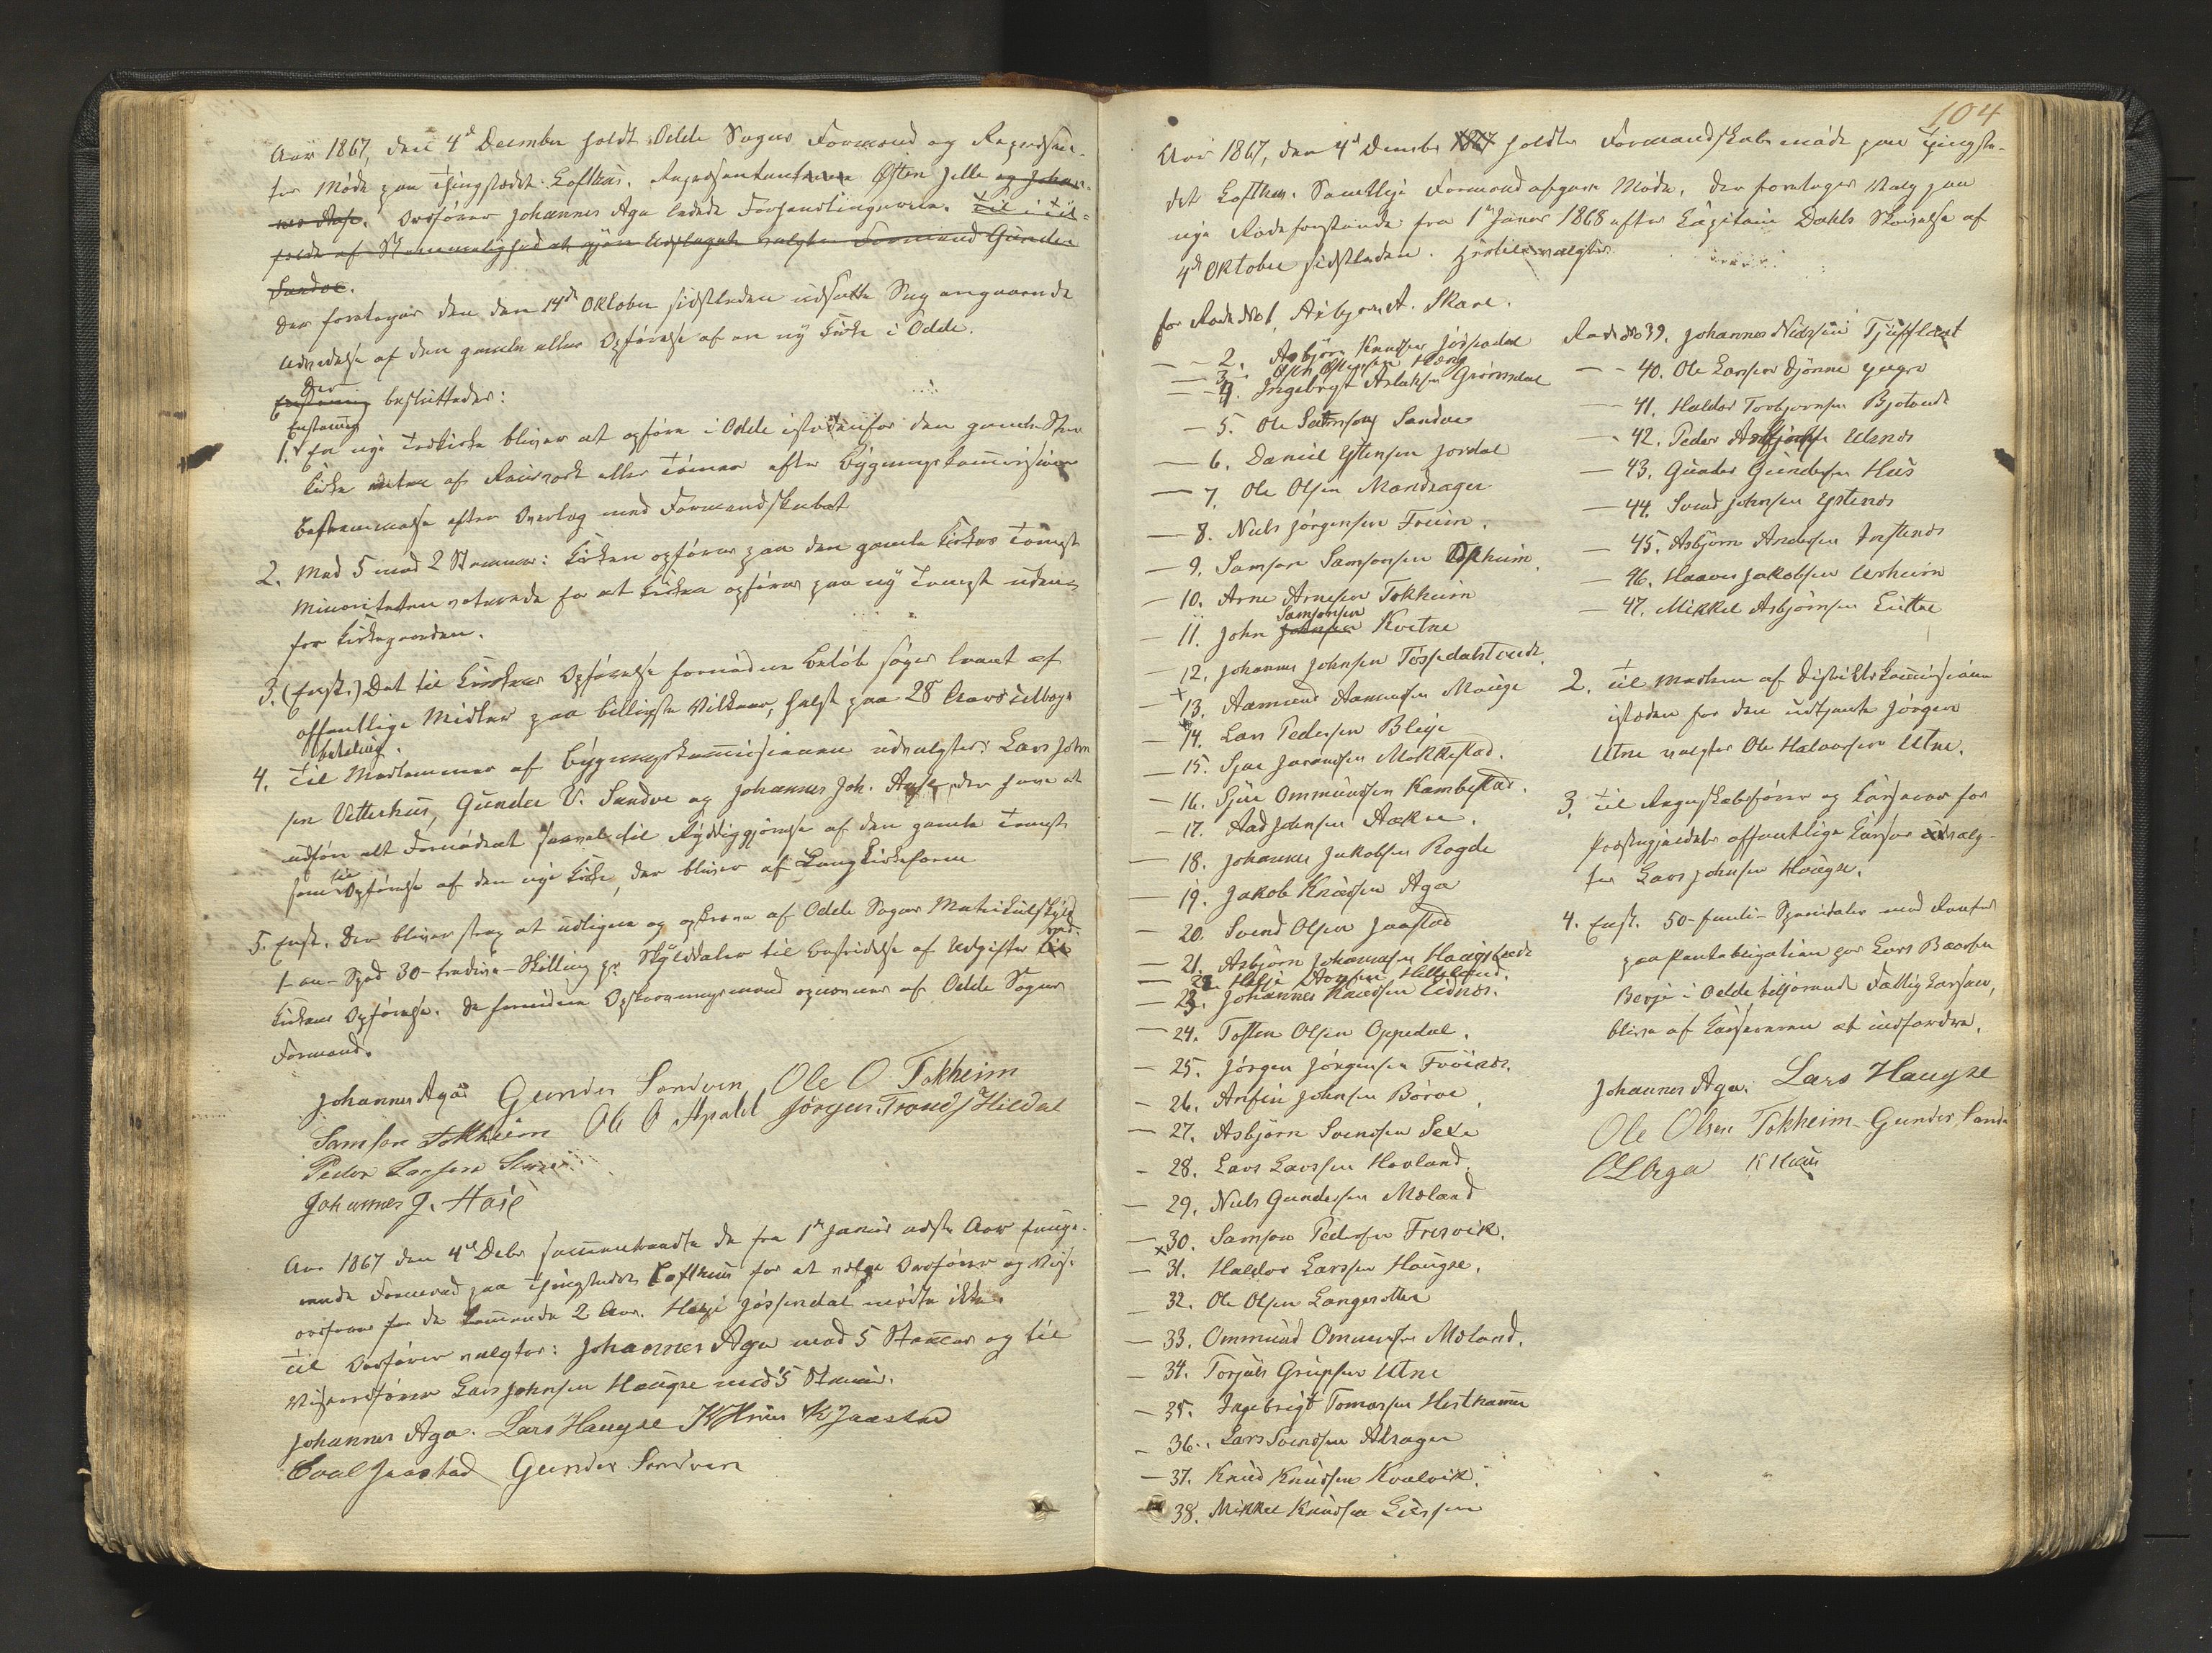 Aar 1867, den 4de December holdt Odde Sogns Formænd og Repræsen-
ter Møde paa Thingstædet Lofthus. Repræsentanterne Østen Jelle og Johan-
nes Aase. Ordfører Johannes Aga ledede Forhandlingerne. Til i Til-
fælde af Stemmelighed at gjøre Udslaget valgtes Formand Gunder
Sandve.
Der foretoges den den 14de Oktober sidstleden udsatte Sag angaaende
Udvidelse af den gamle eller Opførelse af en ny Kirke i Odde.
Der
Enstemmig besluttedes:
Enstemmig
1. En nye Trækirke bliver at opføre i Odde istedenfor den gamle Sten
Kirke enten af Reisverk eller Tømmer efter Bygningskommissionens
Bestemmelse efter Overlæg med Formandskabet
2. Med 5 mod 2 Stemmer: Kirken opføres paa den gamle Kirkes Tomt
Minoriteten voterede for at Kirken opføres paa ny Tomt uden-
for Kirkegaarden.
3. (Enst.) Det til Kirkens Opførelse fornødne Beløb søges laant af
offentlige Midler paa billigste Vilkaar, helst paa 28 Aars Tilbage-
betaling.
4. Til Medlemmer af Bygningskommissionen udvalgtes: Lars John
sen Vetterhus, Gunder V. Sandve og Johannes Joh. Aase, der have at
udføre alt Fornødent saavel til Ryddiggjørelse af den gamle Tomt
som til Opførelse af den nye Kirke, der bliver af Langkirkeform
5. Enst. Der bliver strax at udligne og opkræve af Odde Sogns Matrikulskyld
1- en- Spd 30- tredive- Skilling pr. Skylddaler til Bestridelse af Udgifter ved
Kirkens Opførelse. De fornødne Opkrævningsmænd opnævnes af Odde Sogns
Formænd.
Johannes Aga Gunder Sandven Ole O. Tokheim
Samson Tokheim Ole O Apald Jørgen Tronds Hildal
Peder Larsen
Johannes J. Aase
Aar 1867 den 4de Decbr sammentraadte de fra 1ste Januar næste Aar funge-
rende Formænd paa Thingstedet Lofthus for at vælge Ordfører og Vise-
ordfører for de kommende 2 Aar. Helje Jøssendal mødte ikke.
Til Ordfører valgtes: Johannes Aga med 5 Stemmer og til
Viseordfører Lars Johnsen Haugse med 5 Stemmer.
Johannes Aga. Lars Haugse K Huus K Jaastad
Jaastad Gunder Sandven
104
Aar 1867, den 4de Decembr 1867 holdtes Formandskabsmøde paa Thingste-
det Lofthus. Samtlige Formænd afgave Møde. Der foretoges Valg paa
nye Rodeforstandere fra 1ste Januar 1868 efter Kapitain Dahls Skrivelse af
4de Oktober sidstleden. Hertil valgtes:
for Rode No 1, Asbjørn A. Skare.
— - 2. Asbjørn Knudsen Jøssendal
— 3. Østen Østensen
— - 4. Ingebrigt Aslaksen Grønsdal
— 5. Ole Samsons Sandve
— 6. Daniel Ystensen Jordal
— 7. Ole Olsen Mandsager
— 8. Niels Jørgensen Freim.
— 9. Samson Samsonsen Opheim.
— 10. Arne Arnesen Tokheim
Samsonsen
— 11. John Johnsen Kvitne
— 12. Johannes Johnsen Tyssedalstrede.
— 13. Aamund Aamundsen Mauge
— 14. Lars Pedersen Bleie
— 15. Sjur Mokkestad.
— 16. Sjur Ommundsen Kambestad.
— 17. Aad Johnsen Aakre.
— 18. Johannes Jakobsen Rogde
— 19. Jakob Knudsen Aga
— 20. Svend Olsen Jaastad
— 21. Asbjørn Johannesen
— 22. Helje Helleland.
— 23. Johannes Knudsen Eidnes.
— 24. Tosten Olsen Oppedal.
— 25. Jørgen Jørgensen Frøines.
— 26. Arnfin Johnsen Børve
— 27. Asbjørn Svendsen Sexe
— 28. Lars Larssen Hovland.
— 29. Niels Gundersen Mæland
— x30. Samson Pedersen Fresvik.
— 31. Haldor Larssen Haugse.
— 32. Ole Olsen Langesetter
— 33. Ommund Ommundsen Mæland.
— 34. Torjuls Gripsen Utne
— 35. Ingebrigt Tomassen Hesthammer
— 36. Lars Svendsen Alsager
— 37. Knud Knudsen Kvalvik.
38. Mikkel Knudsen
Rode No 39. Johannes Nielsen Tjoflaat
— - 40. Ole Larsen Djønne yngre
— 41. Haldor Torbjørnsen Bjotvedt
— 42. Peder Asbjørns Ulsnes
— 43. Gunder Gundersen Hus
— 44. Svend Johnsen Ystenes
— 45. Asbjørn Andersen Instenes
— 46. Haaver Jakobsen Urheim
— 47. Mikkel Asbjørnsen Lutne
2. Til Medlem af Distriktskommissionen
isteden for den udtjente Jørgen
Utne valgtes Ole Halvorsen Utne.
3. Til Regnskabsfører og Kasserer for
Præstegjældets offentlige Kasser udvalg-
tes Lars Johnsen Haugse.
4. Enst. 50- femti- Speciedaler med Renter
paa Panteobligation fra Lars Baarsen
i Odde tilhørende Fattigkassen,
blive af Kassereren at indfordre.
Johannes Aga. Lars Haugse
Ole Olsen Tokheim Gunder Sande
O L Aga K Huus